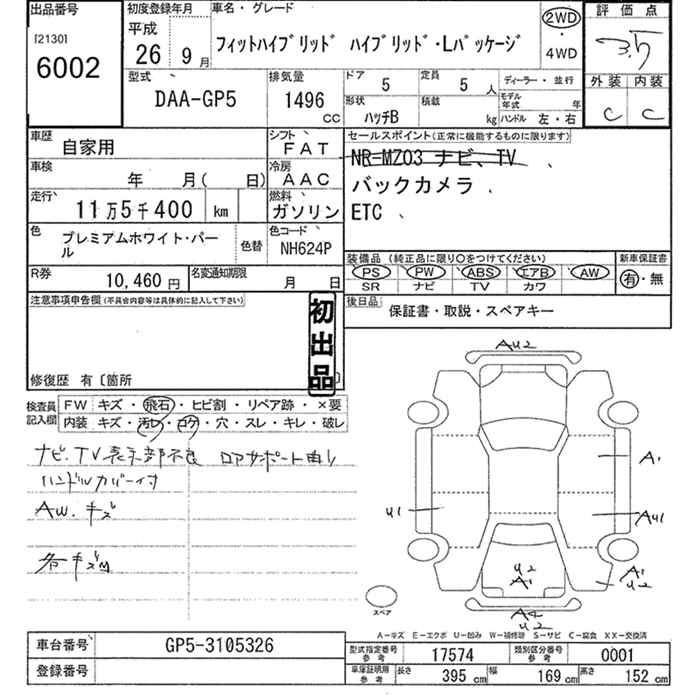 出品番号 初度登録年月 車名・グレード 評価点
[2130] 平成 2WD
6002 26 9月 フィットハイブリッド ハイブリッド・Lパッケージ ・ 3.5
4WD
型式 排気量 ドア 5 定員 5人 ディーラー・並行 外装 内装
DAA-GP5 1496 CC 形状 ハッチB 積載 kg モデル年式 年 C C
ハンドル 左・右
車歴 自家用 シフト FAT セールスポイント(正常に機能するものに限ります)
NR-MZ03 ナビ、TV 、
車検 年 月( 日) 冷房 AAC バックカメラ 、
走行 11万5千400 km 燃料 ガソリン ETC 、
色 プレミアムホワイト・パール 色替 色コード NH624P 装備品(純正品に限り○をつけてください) 新車保証書
PS PW ABS エアB AW 有・無
R券 10,460円 名変通知期限 月 日 SR ナビ TV カワ
注意事項申告欄(不具合内容等は具体的に記入して下さい) 後日品 保証書・取説・スペアキー
初出品
修復歴 有〔箇所 〕
検査員記入欄 FW キズ・飛石・ヒビ割・リペア跡・×要
内装 キズ・汚レ・コゲ・穴・スレ・キレ・破レ
ナビ.TV表示部不良 ロアサポート曲り
ハンドルカバー付
AW.キズ
各キズ
AU2
A1
U1
AU1
U2
A1
A1
U2
A2
U2
スペア
A-キズ E-エクボ U-凹み W-補修跡 S-サビ C-腐食 XX-交換済
車台番号 GP5-3105326 型式指定番号参考 17574 類別区分番号参考 0001
登録番号 車庫証明用参考 長さ 395 cm 幅 169 cm 高さ 152 cm